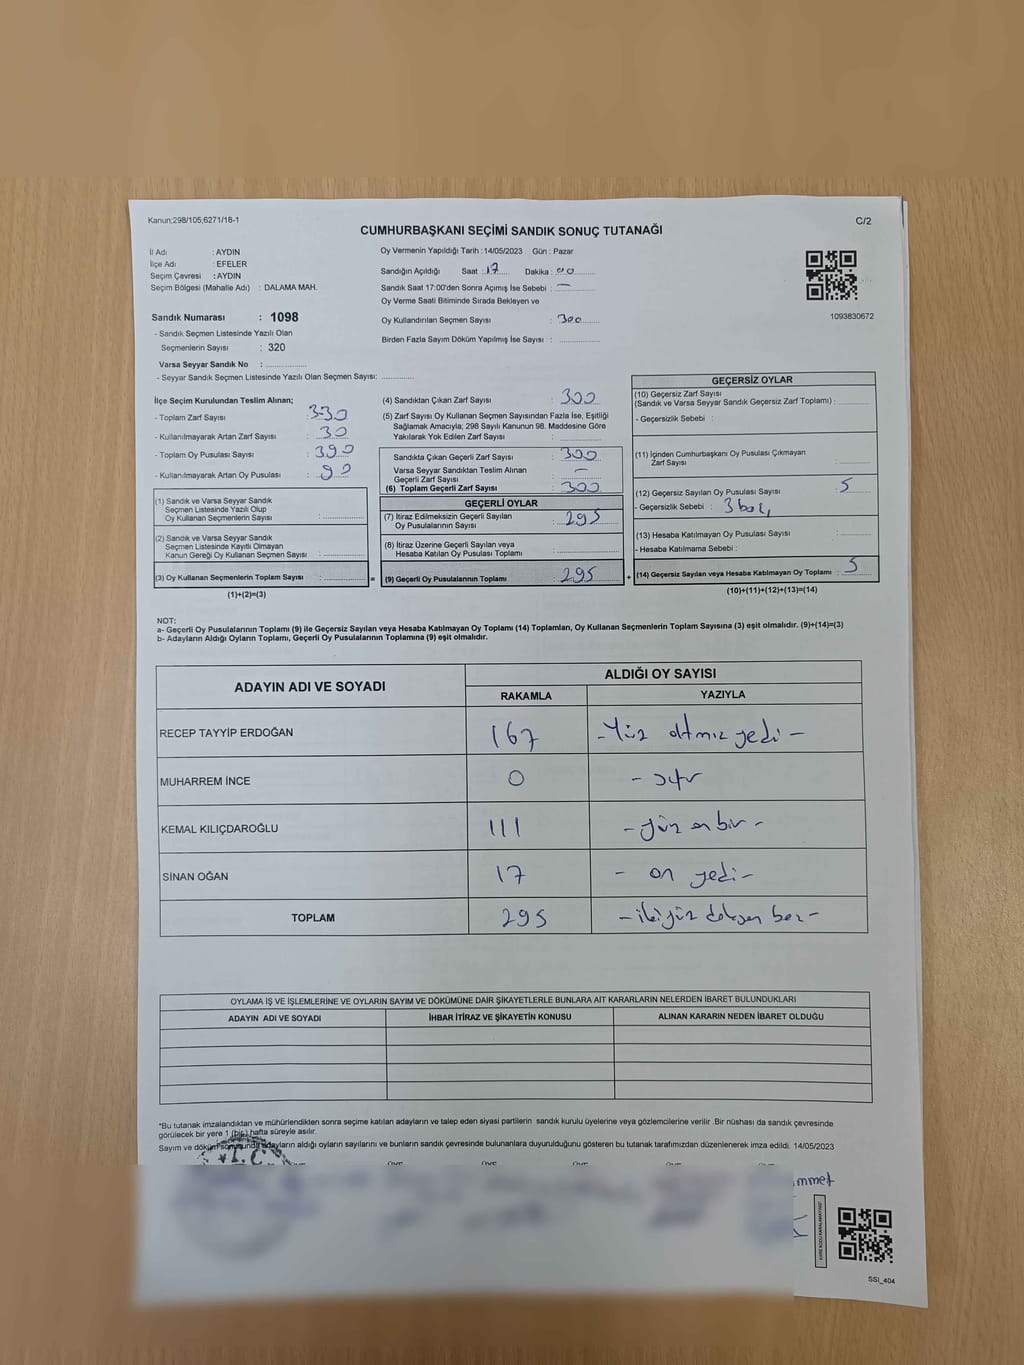 Kanun;298/105;6271/16-1
C/2
CUMHURBAŞKANI SEÇİMİ SANDIK SONUÇ TUTANAĞI
İl Adı : AYDIN
İlçe Adı : EFELER
Seçim Çevresi : AYDIN
Seçim Bölgesi (Mahalle Adı) : DALAMA MAH.
Oy Vermenin Yapıldığı Tarih :14/05/2023 Gün : Pazar
Sandığın Açıldığı Saat : 17 Dakika : 00
Sandık Saat 17:00'den Sonra Açımış İse Sebebi : —
Oy Verme Saati Bitiminde Sırada Bekleyen ve
Oy Kullandırılan Seçmen Sayısı : 300
Birden Fazla Sayım Döküm Yapılmış İse Sayısı :
1093830672
Sandık Numarası : 1098
- Sandık Seçmen Listesinde Yazılı Olan
Seçmenlerin Sayısı : 320
Varsa Seyyar Sandık No :
- Seyyar Sandık Seçmen Listesinde Yazılı Olan Seçmen Sayısı:
İlçe Seçim Kurulundan Teslim Alınan;
- Toplam Zarf Sayısı : 330
- Kullanılmayarak Artan Zarf Sayısı : 30
- Toplam Oy Pusulası Sayısı : 390
- Kullanılmayarak Artan Oy Pusulası : 90
(1) Sandık ve Varsa Seyyar Sandık
Seçmen Listesinde Yazılı Olup
Oy Kullanan Seçmenlerin Sayısı :
(2) Sandık ve Varsa Seyyar Sandık
Seçmen Listesinde Kayıtlı Olmayan
Kanun Gereği Oy Kullanan Seçmen Sayısı :
(3) Oy Kullanan Seçmenlerin Toplam Sayısı : =
(1)+(2)=(3)
(4) Sandıktan Çıkan Zarf Sayısı : 300
(5) Zarf Sayısı Oy Kullanan Seçmen Sayısından Fazla İse, Eşitliği
Sağlamak Amacıyla; 298 Sayılı Kanunun 98. Maddesine Göre
Yakılarak Yok Edilen Zarf Sayısı :
Sandıkta Çıkan Geçerli Zarf Sayısı : 300
Varsa Seyyar Sandıktan Teslim Alınan
Geçerli Zarf Sayısı : —
(6) Toplam Geçerli Zarf Sayısı : 300
GEÇERLİ OYLAR
(7) İtiraz Edilmeksizin Geçerli Sayılan
Oy Pusulalarının Sayısı : 295
(8) İtiraz Üzerine Geçerli Sayılan veya
Hesaba Katılan Oy Pusulası Toplamı :
(9) Geçerli Oy Pusulalarının Toplamı : 295 +
GEÇERSİZ OYLAR
(10) Geçersiz Zarf Sayısı
(Sandık ve Varsa Seyyar Sandık Geçersiz Zarf Toplamı) :
- Geçersizlik Sebebi :
(11) İçinden Cumhurbaşkanı Oy Pusulası Çıkmayan
Zarf Sayısı :
(12) Geçersiz Sayılan Oy Pusulası Sayısı : 5
- Geçersizlik Sebebi : 3
(13) Hesaba Katılmayan Oy Pusulası Sayısı :
- Hesaba Katılmama Sebebi :
(14) Geçersiz Sayılan veya Hesaba Katılmayan Oy Toplamı : 5
(10)+(11)+(12)+(13)=(14)
NOT:
a- Geçerli Oy Pusulalarının Toplamı (9) ile Geçersiz Sayılan veya Hesaba Katılmayan Oy Toplamı (14) Toplamları, Oy Kullanan Seçmenlerin Toplam Sayısına (3) eşit olmalıdır. (9)+(14)=(3)
b- Adayların Aldığı Oyların Toplamı, Geçerli Oy Pusulalarının Toplamına (9) eşit olmalıdır.
ADAYIN ADI VE SOYADI
ALDIĞI OY SAYISI
RAKAMLA YAZIYLA
RECEP TAYYİP ERDOĞAN 167 - Yüz altmış yedi -
MUHARREM İNCE 0 - sıfır
KEMAL KILIÇDAROĞLU 111 - yüz on bir -
SİNAN OĞAN 17 - on yedi -
TOPLAM 295 - ikiyüz doksan beş -
OYLAMA İŞ VE İŞLEMLERİNE VE OYLARIN SAYIM VE DÖKÜMÜNE DAİR ŞİKAYETLERLE BUNLARA AİT KARARLARIN NELERDEN İBARET BULUNDUKLARI
ADAYIN ADI VE SOYADI İHBAR İTİRAZ VE ŞİKAYETİN KONUSU ALINAN KARARIN NEDEN İBARET OLDUĞU
*Bu tutanak imzalandıktan ve mühürlendikten sonra seçime katılan adayların ve talep eden siyasi partilerin sandık kurulu üyelerine veya gözlemcilerine verilir. Bir nüshası da sandık çevresinde
görülecek bir yere 1 (bir) hafta süreyle asılır.
Sayım ve döküm sonucunda adayların aldığı oyların sayılarını ve bunların sandık çevresinde bulunanlara duyurulduğunu gösteren bu tutanak tarafımızdan düzenlenerek imza edildi. 14/05/2023
T.C.
mmet
SSI_404